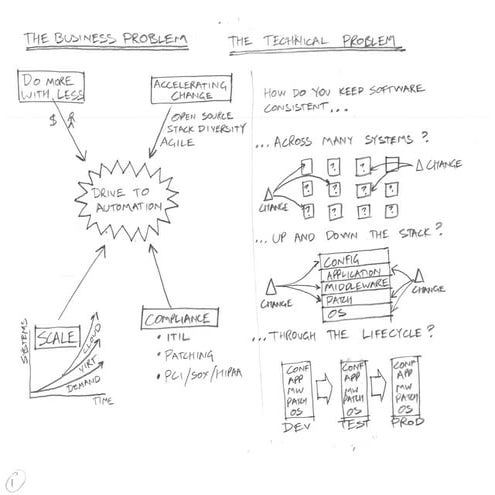 THE BUSINESS PROBLEM
DO MORE
WITH LESS
$
ACCELERATING
CHANGE
OPEN SOURCE
STACK DIVERSITY
AGILE
DRIVE TO
AUTOMATION
SCALE
SYSTEMS
CLOUD
VIRT
DEMAND
TIME
COMPLIANCE
• ITIL
• PATCHING
• PCI/SOX/HIPAA
THE TECHNICAL PROBLEM
HOW DO YOU KEEP SOFTWARE
CONSISTENT...
...ACROSS MANY SYSTEMS?
? ? ? ?
Δ CHANGE
? ? ? ?
Δ
CHANGE
? ? ? ?
...UP AND DOWN THE STACK?
CONFIG
APPLICATION
MIDDLEWARE
PATCH
OS
Δ
CHANGE
Δ
CHANGE
...THROUGH THE LIFECYCLE?
CONF
APP
MW
PATCH
OS
DEV
CONF
APP
MW
PATCH
OS
TEST
CONF
APP
MW
PATCH
OS
PROD
1